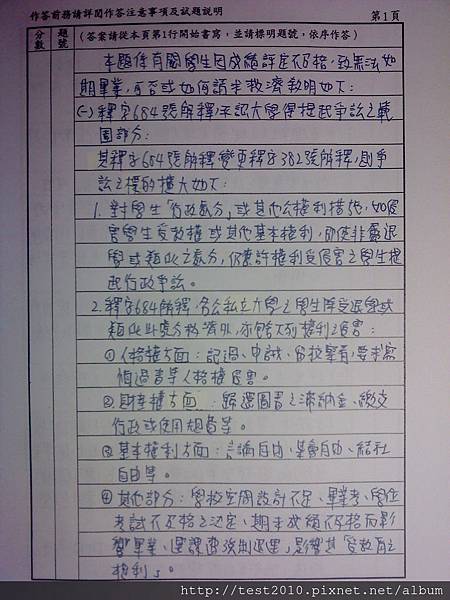 作答前務請詳閱作答注意事項及試題說明
第1頁
分數
題號
(答案請從本頁第1行開始書寫，並請標明題號，依序作答)
本題係有關學生因成績評定不及格，致無法如
期畢業，可否或如何請求救濟敘明如下：
(一)釋字684號解釋承認大學得提起爭訟之範
圍部分：
其釋字684號解釋變更釋字382號解釋，則爭
訟之標的擴大如下：
1. 對學生「行政處分」或其他公權利措施，如侵
害學生受教權或其他基本權利，即使非屬退
學或類此之處分，仍應許權利受侵害之學生提
起行政爭訟。
2. 釋字684解釋，各公私立大學之學生除受退學或
類此處分救濟外，亦含下列權利之侵害：
①人格權方面：記過、申誡、留校察看，要求寫
悔過書等人格權侵害。
②財產權方面：歸還圖書之滯納金、繳交
行政或使用規費等。
③基本權利方面：言論自由、集會自由、結社
自由等。
④其他部分：學校空間設計不足、畢業考、學位
考試不及格之決定、期末成績不及格而影
響畢業、選課遭強制退選，影響其「受教育之
權利」。
http://test2010.pixnet.net/album